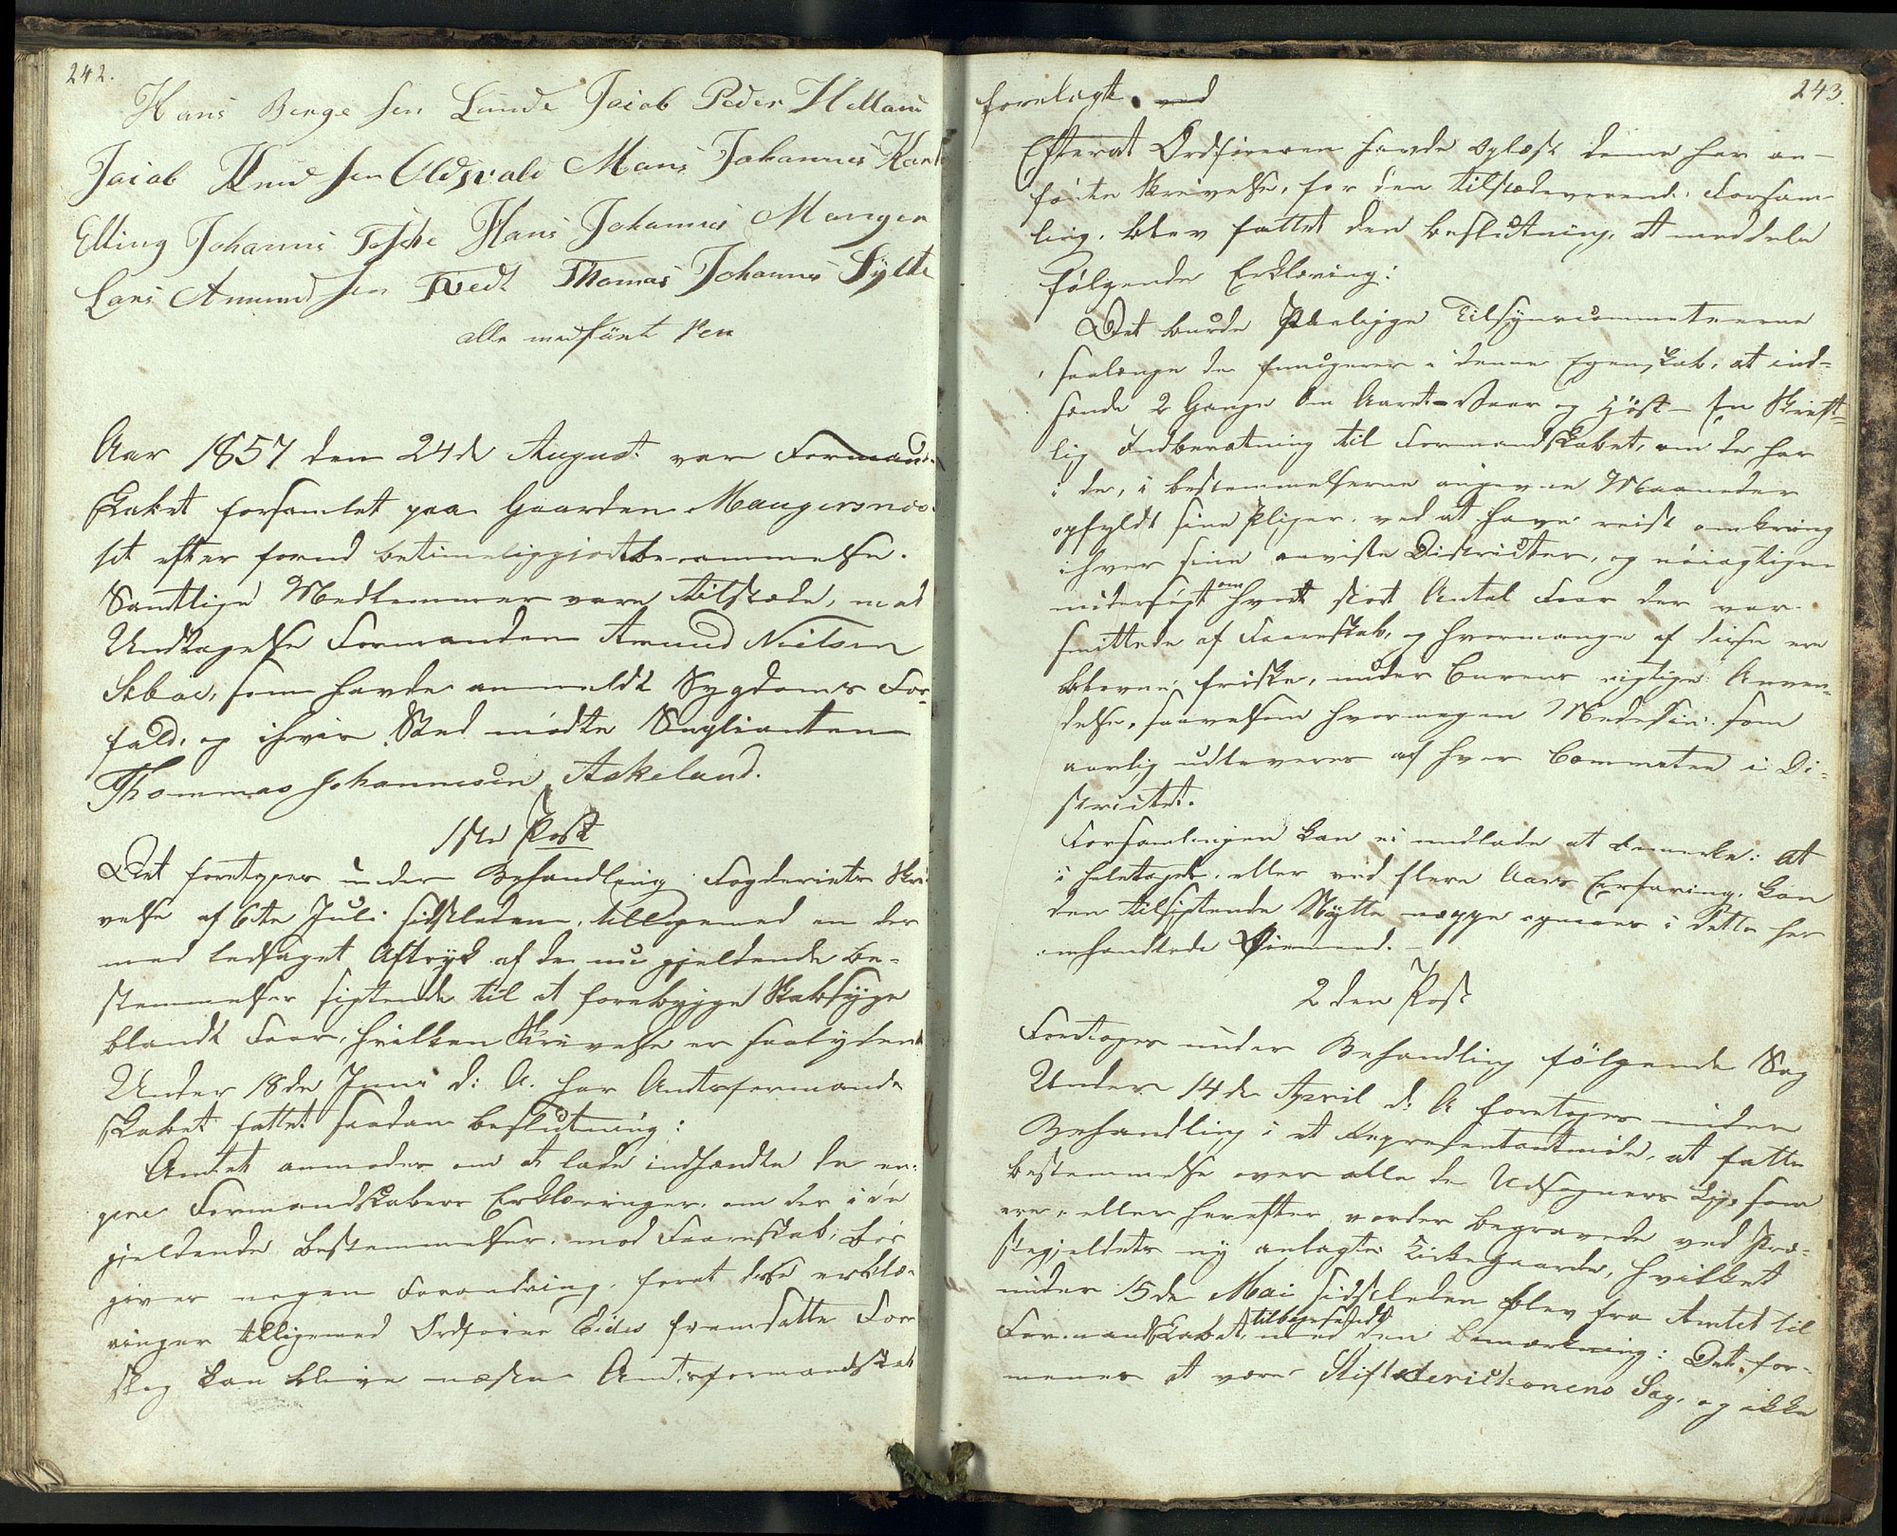 242.
Hans Berge sen Lunde Jacob Peder Helland
Jacob Knud sen Oldsvali Mons Johannes
Elling Johannis Toske Hans Johannes Manger
Lars Amund sen Tvedt Thomas Johannes Sylte
alle med ført Pen
Aar 1857 den 24de August var Formand-
skabet forsamlet paa Gaarden Maugersnæs-
set efter forud betimeliggjort berammelse.
Samtlige Medlemmer vare tilstæde, med
Undtagelse Formanden Amund Nielsen
Sæbøe, som havde anmeldt Sygdoms For-
fald, og ihvis Sted mødte Suplianten
Thommas Johannesen Askeland.
1ste Post
Det foretages under Behandling Fogderiets Skri-
velse af 6te Juli sidstleden, tilligemed en der
med ledsaget Aftryk af de nu gjeldende Be-
stemmelser sigtende til at forebygge Skabsyge
blandt Faar, hvilken Skrivelse er saalydende
Under 18de Juni d: A. har Amtsformand-
skabet fattet saadan Beslutning:
Amtet anmodes om at lade indhændte de ved-
gjeldende Bestemmelser, mod Faareskab, bør
gives nogen Forandring, foret disse erklæ-
ringer tilligemed Ordfører Eides fremsatte For
slag kan blive næste Amtsformandskab
243.
forelagt. ved
Efterat Ordføreren havde oplæst denne her an-
førte Skrivelse, for den tilstedeværende Forsam-
ling, blev fattet den Beslutning, at meddele
følgende Erklæring:
Det burde Paaligge Tilsynscommeteerne
saalænge de fungerer i denne Egenskab, at ind-
sende 2 Gange Om Aaret - Vaar og Høst - en Skrift-
lig Indberetning til Formandskabet, om de har
i de, i bestemmelserne angivne Maaneder
opfyldt sine Pligter, ved at have reist omkring
i hver sine anviste Districter, og nøiagtigen
undersøgt om hvort stort Antal Faar der var
smittede af Faareskab, og hvormange af disse ere
blevne friske, under Curens rigtige Anven-
delse, saavelsom hvormegen Medesin som
aarlig udleveres af hver Commetee i Di-
strictet.
Forsamlingen kan ei undlade at bemærke: at
i heletaget, eller ved flere Aars Erfaring, kan
den tilsigtende Nytte neppe opnaaes i dette her
omhandlede Øiemed. -
2den Post
Foretages under Behandling følgende Sag
Under 14de April d: A foretages under
Behandling i et Representantmøde, at fatte
Bestemmelse over alle de Udsogners Lig, som
ere, eller herefter vorder begravede ved Præ-
stegjeldets ny anlagte Kirkegaarde, hvilket
under 15de Mai sidstleden blev fra Amtet til
Formandskabet tilbagesendt med den Bemærkning: Det for-
menes at være Stiftsderictionens Sag, og ikke